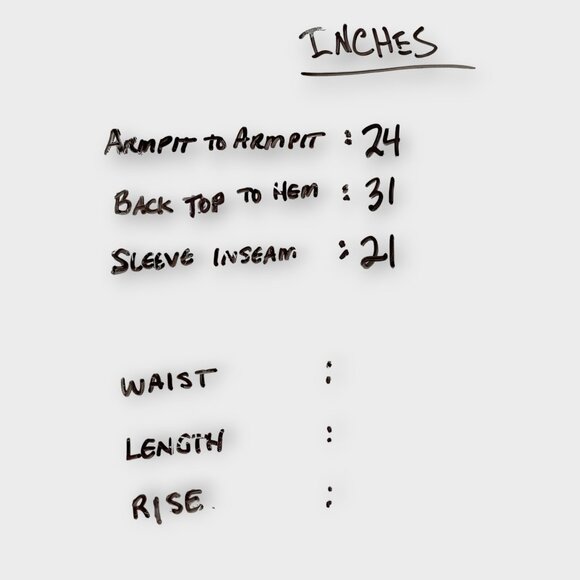 INCHES
ARMPIT TO ARMPIT : 24
BACK TOP TO HEM : 31
SLEEVE INSEAM : 21
WAIST :
LENGTH :
RISE :